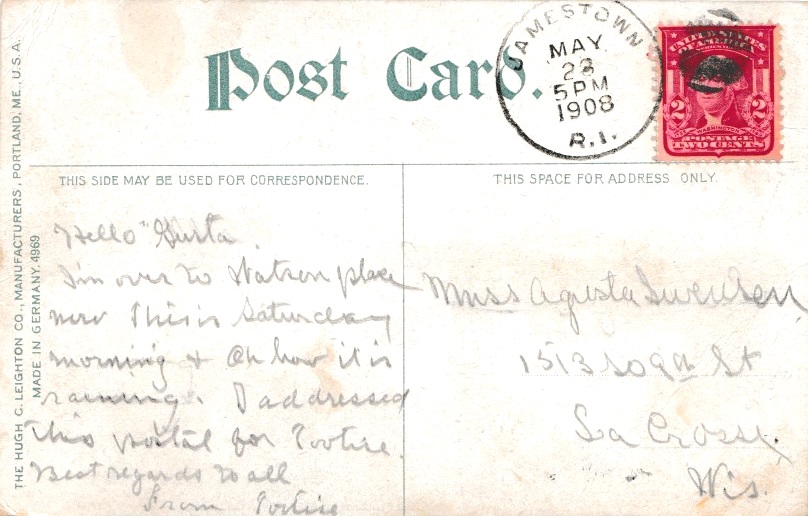 Post Card.
JAMESTOWN
MAY
23
5 PM
1908
R.I.
UNITED STATES
OF AMERICA
2 2
WASHINGTON
POSTAGE
TWO CENTS
THIS SIDE MAY BE USED FOR CORRESPONDENCE.
THIS SPACE FOR ADDRESS ONLY.
THE HUGH C. LEIGHTON CO., MANUFACTURERS, PORTLAND, ME., U.S.A.
MADE IN GERMANY. 4969
Hello "Gusta.
I'm over to Watson place
now This is Saturday
morning & Oh how it is
raining. I addressed
this postal for Tootise.
Best regards to all
From Tootise
Miss Agusta Swensen
1513 So 9th St
La Crosse.
Wis.